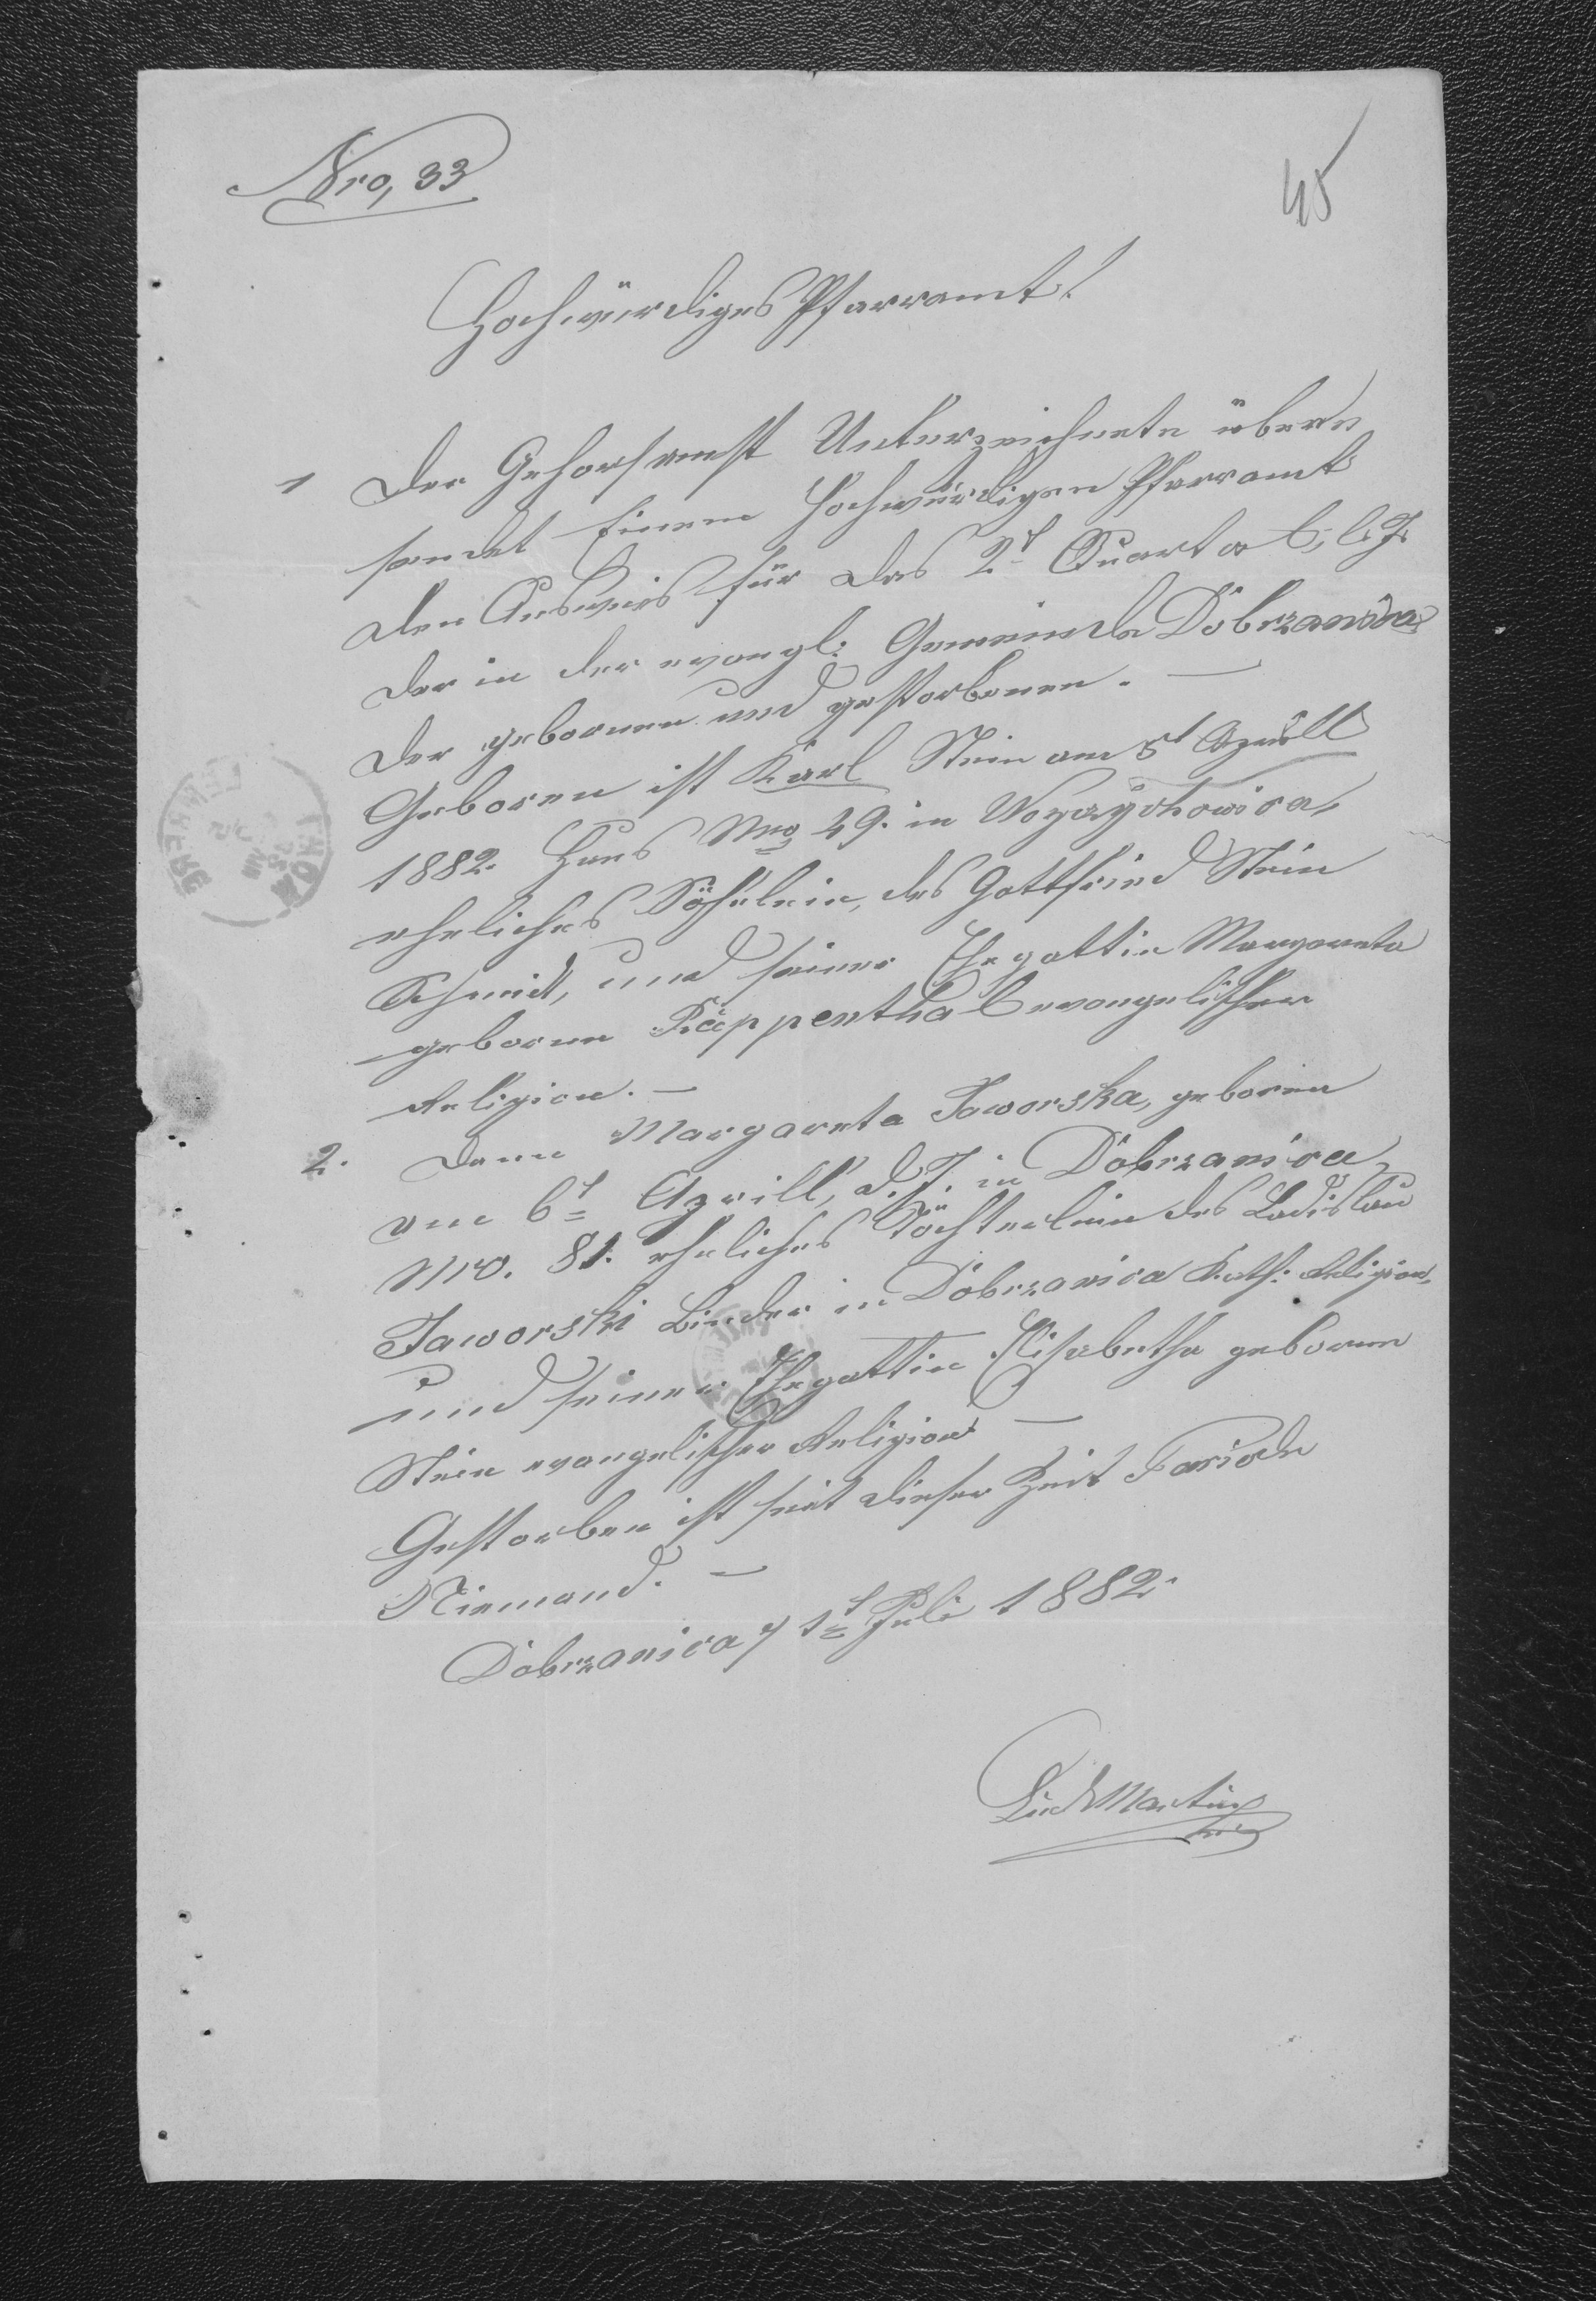 Nro, 33
45
Hochwürdiges Pfarramt!
1 Der Gehorsamst Unterzeichnete über
sendet Einem Hochwürdigen Pfarramt
den Ausweis für das 2t Quartal, l. J.
der in der evangl: Gemeinde Dobrzanica
der gebornen und gestorbenen. —
Geboren ist Karl Stein am 5t Aprill
1882. Haus Nro 49. in
eheliches Söhnlein, des Gottfried Stein
Schmidt, und seiner Ehegattin Margareta
geborne Rappenthal evangelischer
Religion. —
2. Dann Margareta Jaworska, geboren
am 6t Aprill, d. J. in Dobrzanica
Nro. 81. eheliches Töchterlein des Ladislau
Jaworski Binder in Dobrzanica Kath: Religion,
und seiner Ehegattin Elisabetha geborne
Stein evangelischer Religion —
Gestorben ist seit dieser Zeit Periode
Niemand. —
Dobrzanica, 1t Juli 1882.
Martin
LEMBERG
LWOW